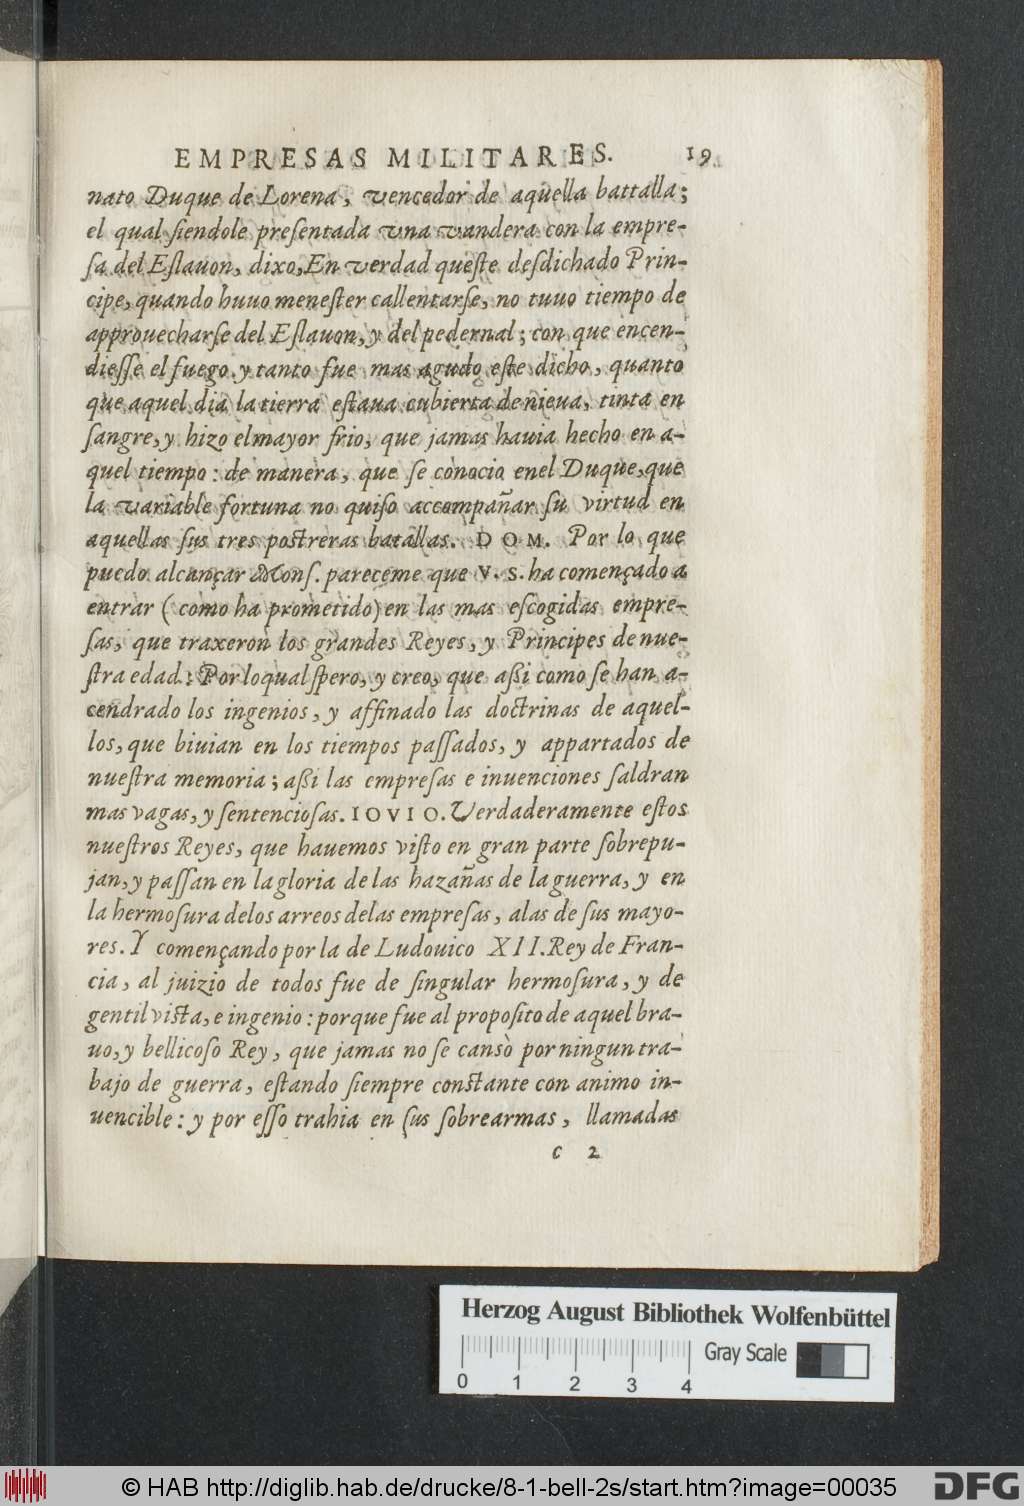 EMPRESAS MILITARES. 19
nato Duque de Lorena, vencedor de aquella battalla;
el qual ſiendole preſentada vna vandera con la empre-
ſa del Eſlauon, dixo, En verdad queſte deſdichado Prin-
cipe, quando huuo meneſter callentarſe, no tuuo tiempo de
approuecharſe del Eſlauon, y del pedernal; con que encen-
dieſſe el fuego. y tanto fue mas agudo eſte dicho, quanto
que aquel dia la tierra eſtaua cubierta de nieua, tinta en
ſangre, y hizo el mayor frio, que jamas hauia hecho en a-
quel tiempo: de manera, que ſe conocio enel Duque, que
la variable fortuna no quiſo accompañar ſu virtud en
aquellas ſus tres poſtreras batallas. DOM. Por lo que
puedo alcançar Monſ. pareceme que V. S. ha començado a
entrar (como ha prometido) en las mas eſcogidas empre-
ſas, que traxeron los grandes Reyes, y Principes de nue-
ſtra edad.: Por loqual ſpero, y creo, que aßi como ſe han a-
cendrado los ingenios, y affinado las doctrinas de aquel-
los, que biuian en los tiempos paſſados, y appartados de
nueſtra memoria; aßi las empreſas e inuenciones ſaldran
mas vagas, y ſentencioſas. IOVIO. Verdaderamente eſtos
nueſtros Reyes, que hauemos viſto en gran parte ſobrepu-
jan, y paſſan en la gloria de las hazañas de la guerra, y en
la hermoſura delos arreos delas empreſas, alas de ſus mayo-
res. Y començando por la de Ludouico XII. Rey de Fran-
cia, al juizio de todos fue de ſingular hermoſura, y de
gentil viſta, e ingenio: porque fue al propoſito de aquel bra-
uo, y bellicoſo Rey, que jamas no ſe cansò por ningun tra-
bajo de guerra, eſtando ſiempre conſtante con animo in-
uencible: y por eſſo trahia en ſus ſobrearmas, llamadas
c 2
Herzog August Bibliothek Wolfenbüttel
Gray Scale
0 1 2 3 4
© HAB http://diglib.hab.de/drucke/8-1-bell-2s/start.htm?image=00035
DFG